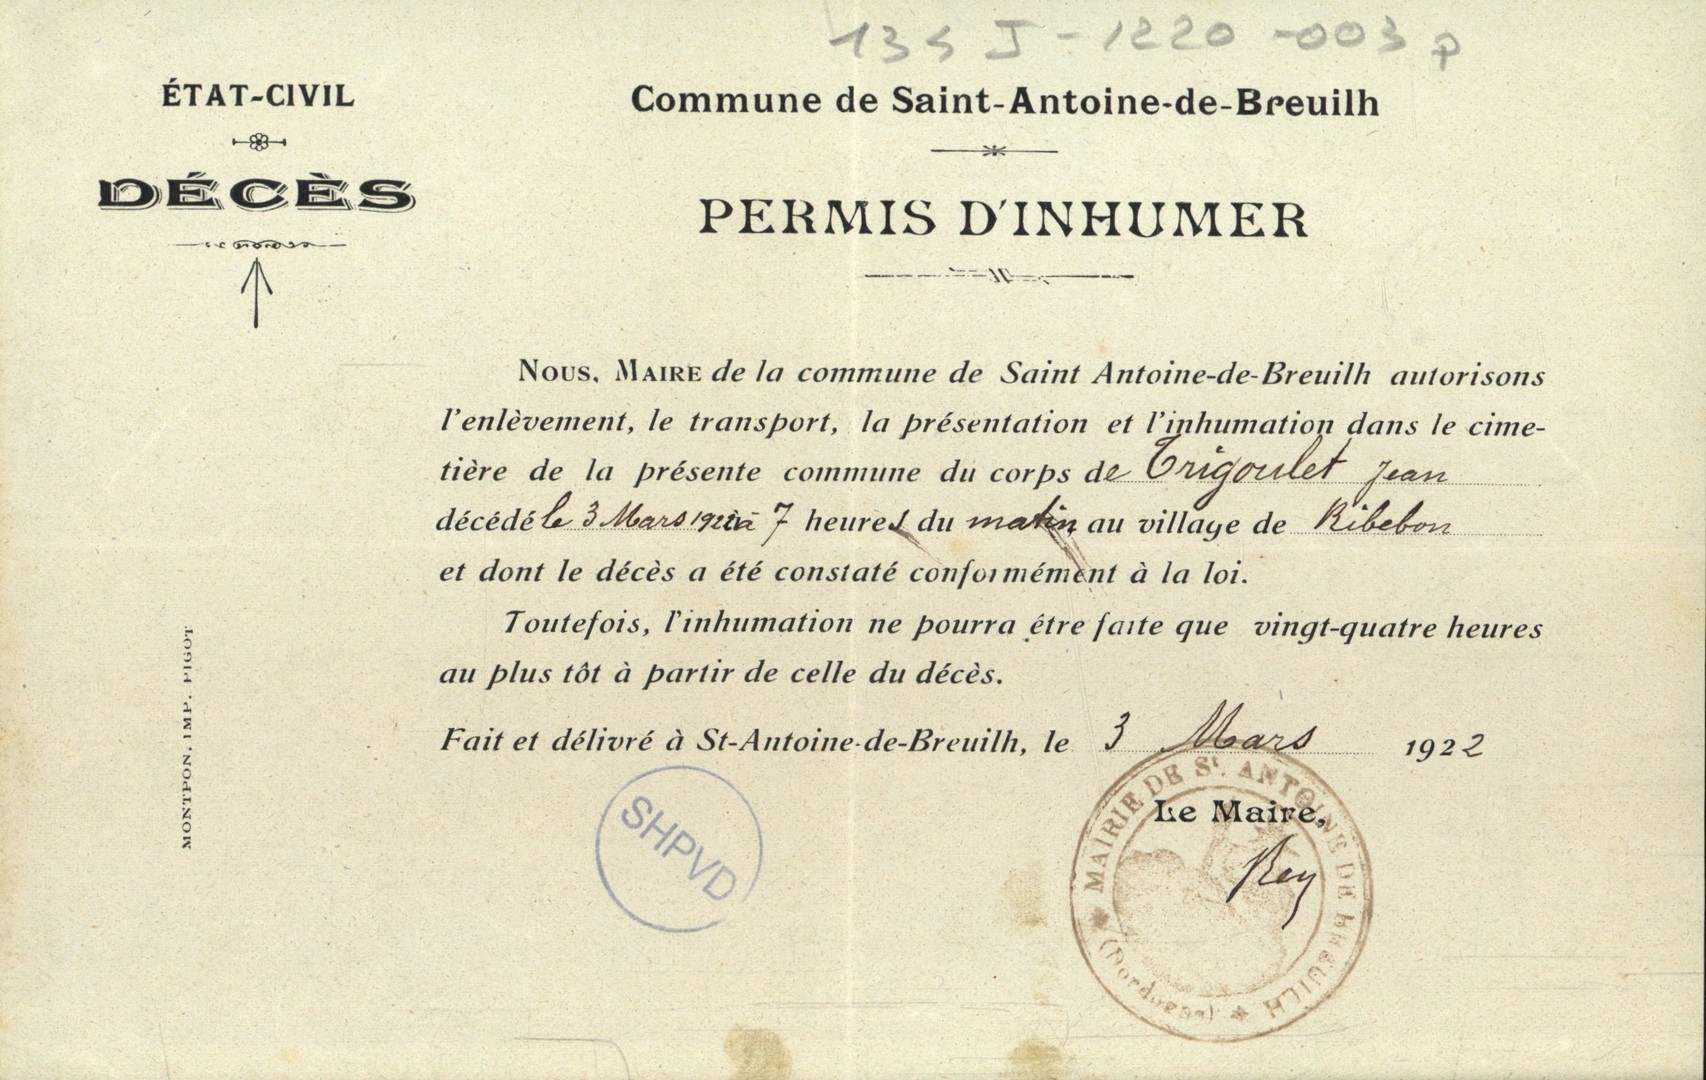 134 J - 1220 - 003 p
ÉTAT-CIVIL
DÉCÈS
Commune de Saint-Antoine-de-Breuilh
PERMIS D'INHUMER
NOUS, MAIRE de la commune de Saint Antoine-de-Breuilh autorisons
l'enlèvement, le transport, la présentation et l'inhumation dans le cime-
tière de la présente commune du corps de Trigoulet Jean
décédé le 3 Mars 1922 à 7 heures du matin au village de Ribebon
et dont le décès a été constaté conformément à la loi.
Toutefois, l'inhumation ne pourra être faite que vingt-quatre heures
au plus tôt à partir de celle du décès.
Fait et délivré à St-Antoine-de-Breuilh, le 3 Mars 1922
Le Maire,
Rey
MAIRIE DE St. ANTOINE DE BREUILH
(Dordogne)
SHPVD
MONTPON, IMP. PIGOT